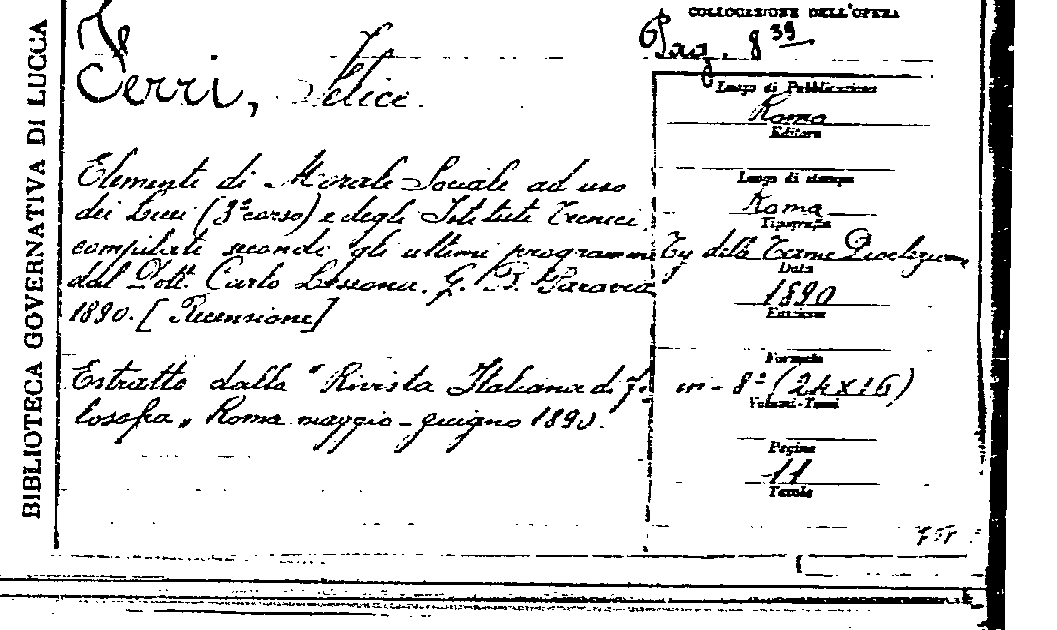 BIBLIOTECA GOVERNATIVA DI LUCCA
COLLOCAZIONE DELL'OPERA
Pag. 8 39
Ferri, Felice.
Elementi di Morale Sociale ad uso
dei Licei (3º corso) e degli Istituti Tecnici
compilati secondo gli ultimi programmi
dal Dott. Carlo Lessona. G. B. Paravia
1890. [Recensione]
Estratto dalla "Rivista Italiana di Fi-
losofia" Roma maggio-giugno 1890.
Luogo di Pubblicazione
Roma
Editore
Luogo di stampa
Roma
Tipografia
Tip delle Terme Diocleziane
Data
1890
Edizione
Formato
in-8º (24x16)
Volumi-Tomi
Pagine
11
Tavole